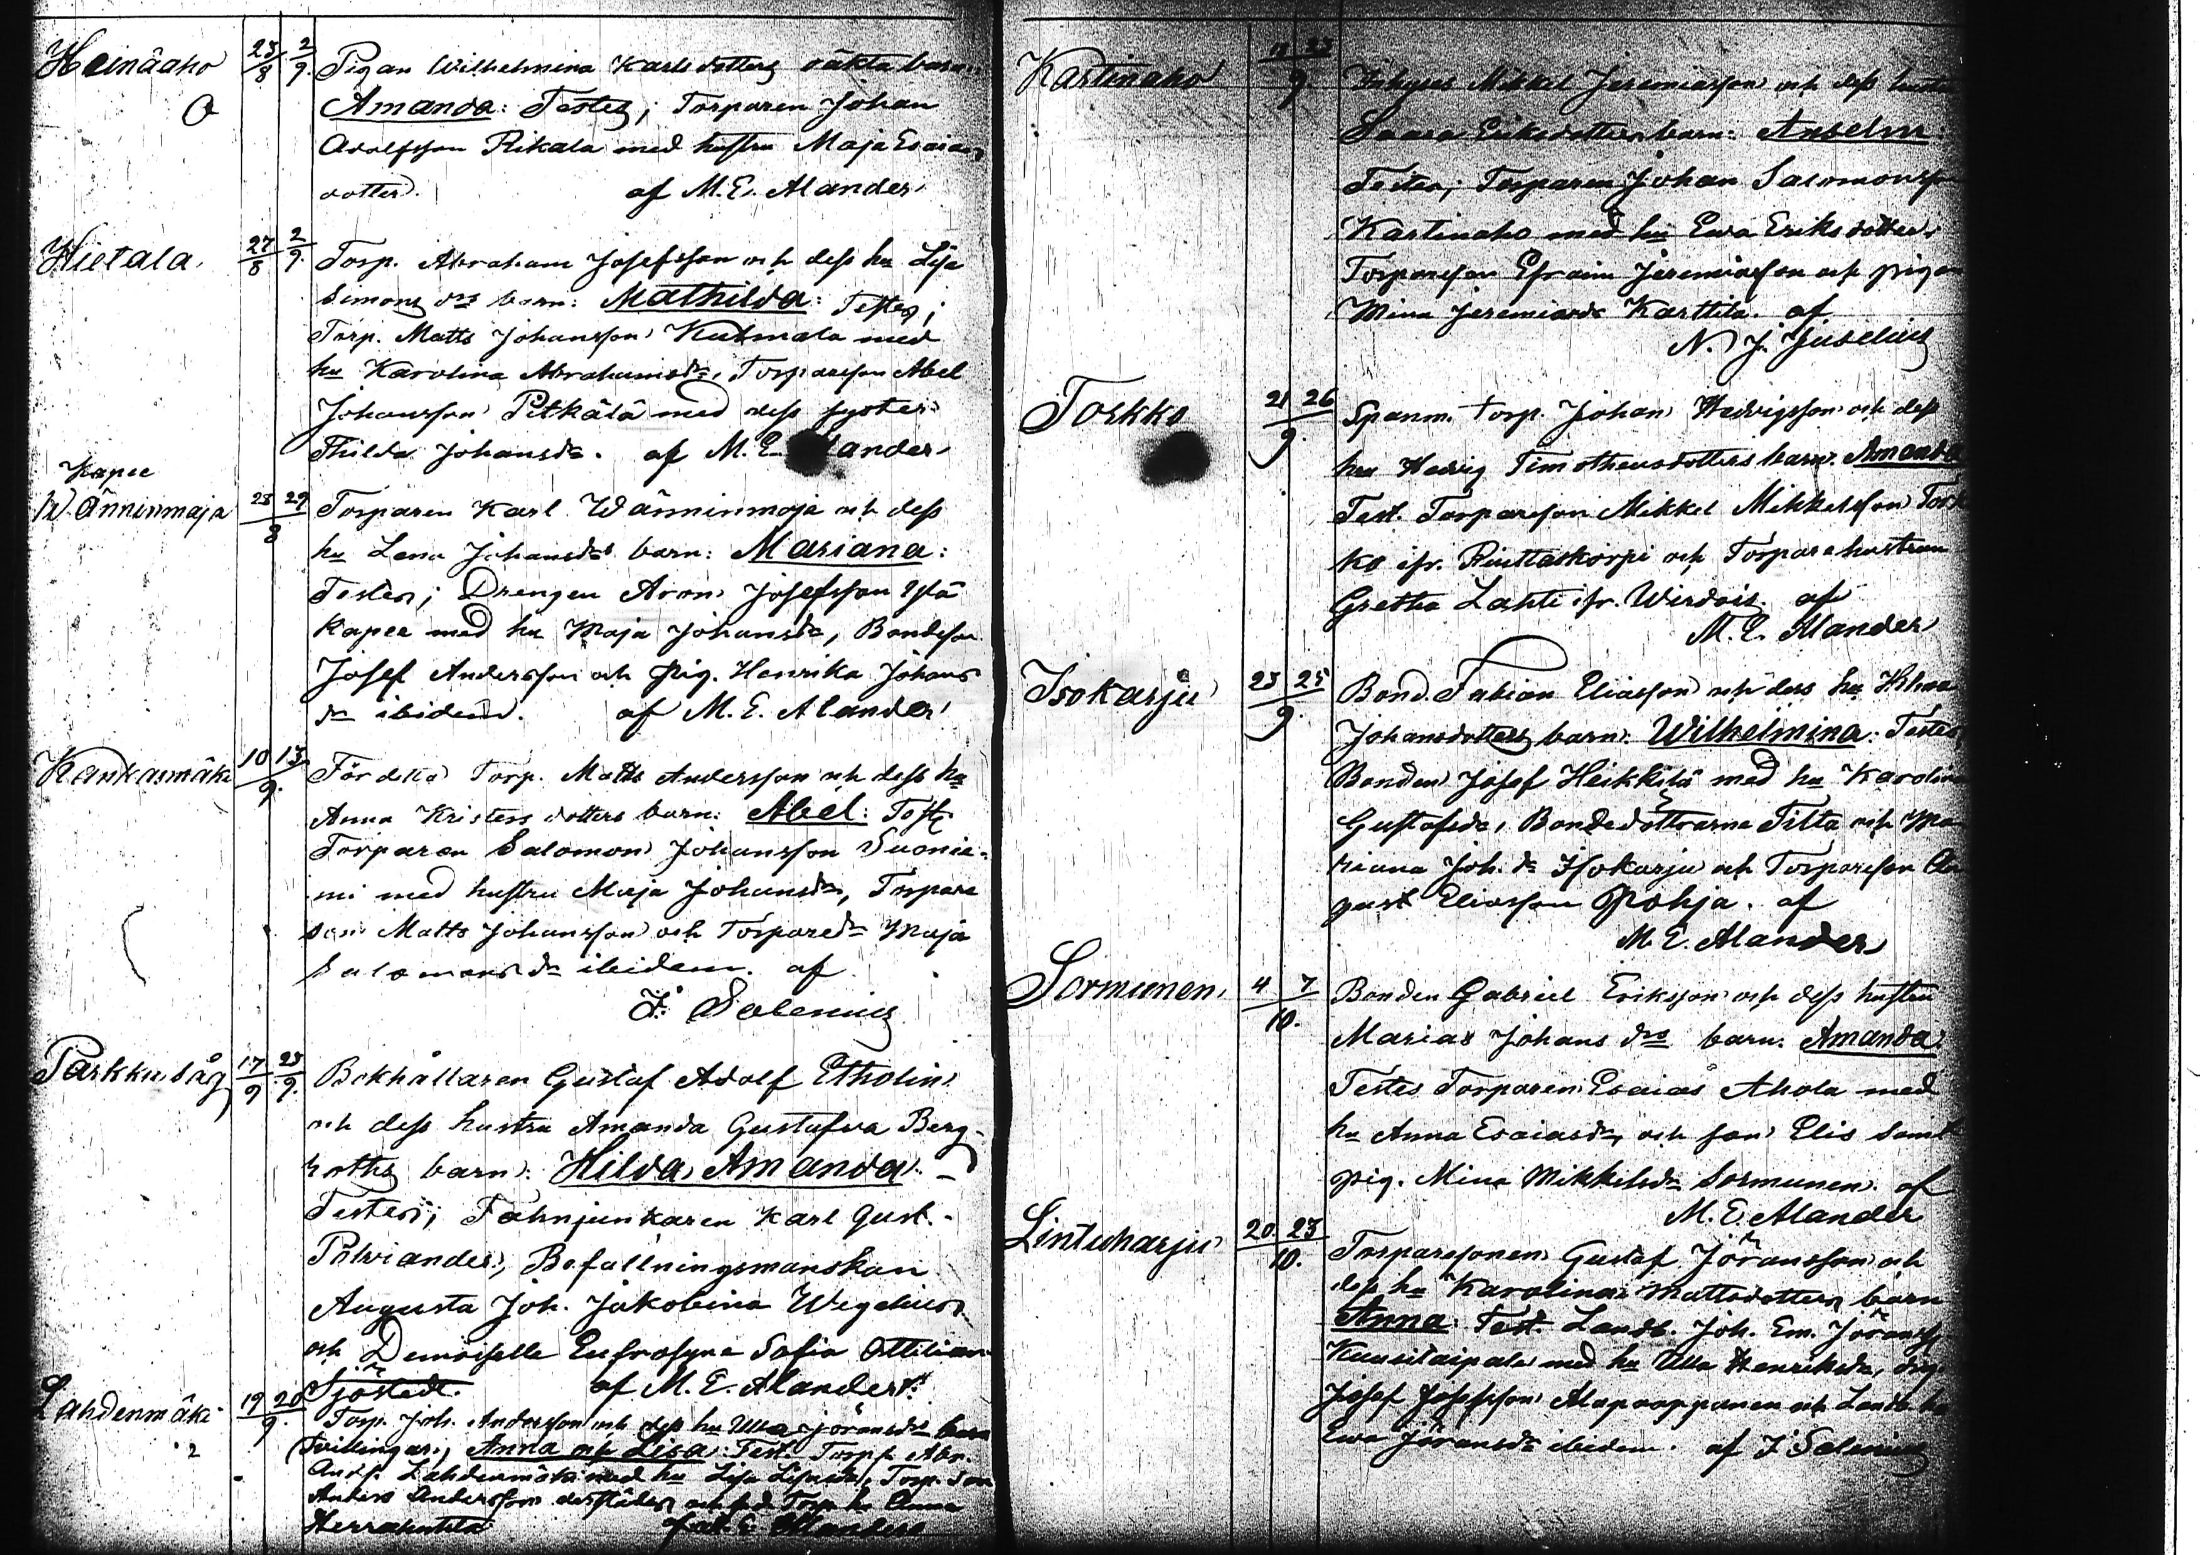 Heinäaho 23/8 2/9. Pigan Wilhelmina Karlsdotters oäkta barn:
Amanda: Testes; Torparen Johan
Adolfsson Rikala med hustru Maja Esaias
dotter. af M. E. Alander
Hietala. 27/8 2/9. Torp. Abraham Josefsson och dess hu Lisa
Simons drs barn: Mathilda: Testes;
Torp. Matts Johansson Kuhmala med
hu Karolina Abrahamsdr, Torpareson Abel
Johansson Pitkälä med dess syster
Thilda Johansdr. af M. E. Alander
Kapee
Wänninmaja 28 29/8 Torparen Karl Wänninmaja och dess
hu Lena Johansdrs barn: Mariana:
Testes; Drengen Aron Josefsson Ylä
Kapee med hu Maja Johansdr, Bondeson
Josef Andersson och pig. Henrika Johans
dr ibidem. af M. E. Alander
Kankasmäki 10 13/9. Torp. Matts Andersson och dess hu
Anna Kristersdotters barn: Abel: Test:
Torparen Salomon Johansson Suonie-
mi med hustru Maja Johansdr, Torpare
son Matts Johansson och Torparedr Maja
Salomonsdr ibidem. af
F. Salenius
Parkku såg 17/9 23/9. Bokhållaren Gustaf Adolf Etholin
och dess hustru Amanda Gustafva Berg-
roths barn: Hilda Amanda. –
Testes; Fahnjunkaren Karl Gust.
Palviander, Befallningsmanskan
Augusta Joh. Jakobina Wegelius
och Demoiselle Eufrosyne Sofia Ottiliana
Sjöstedt. af M. E. Alander.
Lahdenmäki 19 20/9. Torp. Joh. Andersson och dess hu Ulla Jöransdrs barn
2 tvillingar, Anna och Lisa: Test. Torp. Abr.
Ands. Lahdenmäki med hu Lisa, Torp. son
Anders Andersson och Torp. hu Anna
Herrakuhla af M. E. Alander
Kartinaho 18 23/9. Mikkel Jeremiasson och dess hustru
Saara Eriksdotters barn: Anselm.
Testes; Torparen Johan Salomonsson
Kartinaho med hu Ewa Eriksdotter,
Torpareson Efraim Jeremiasson och pigan
Mina Jeremiasdr Karttila. af
N. J. Juselius
Torkko 21 26/9. Spanm. torp. Johan Hedvigsson och dess
hru Hedvig Timotheusdotters barn: Amanda
Test. Torpareson Mikkel Mikkelsson Tork
ko ifr. Riuttaskorpi och Torparehustrun
Gretha Lahti ifr. Wirdois. af
M. E. Alander
Isokarju 23 25/9. Bond. Fabian Eliasson och dess hu
Johansdotters barn: Wilhelmina: Testes,
Bonden Josef Heikkilä med hu Karolina
Gustafsdr, Bondedöttrarna Tilta och Ma
riana Joh. dr Isokarju och Torpareson Au
gust Eliasson Pohja. af
M. E. Alander
Sormunen, 4 7/10. Bonden Gabriel Eriksson och dess hustru
Marias Johans drs barn. Amanda
Testes Torparen Esaias Ahola med
hu Anna Esaiasdr, och son Elis samt
pig. Mina Mikkelsdr Sormunen. af
M. E. Alander
Lintuharju 20 23/10. Torparesonen Gustaf Jöransson och
dess hu Karolina Mattsdotters barn
Anna. Test. Landb. Joh. Em. Jöranss.
Kuusitaipale med hu Ulla Henriksdr, drg.
Josef Josefsson Alapaappanen och Landb. hu
Ewa Jöransdr ibidem. af F. Salenius